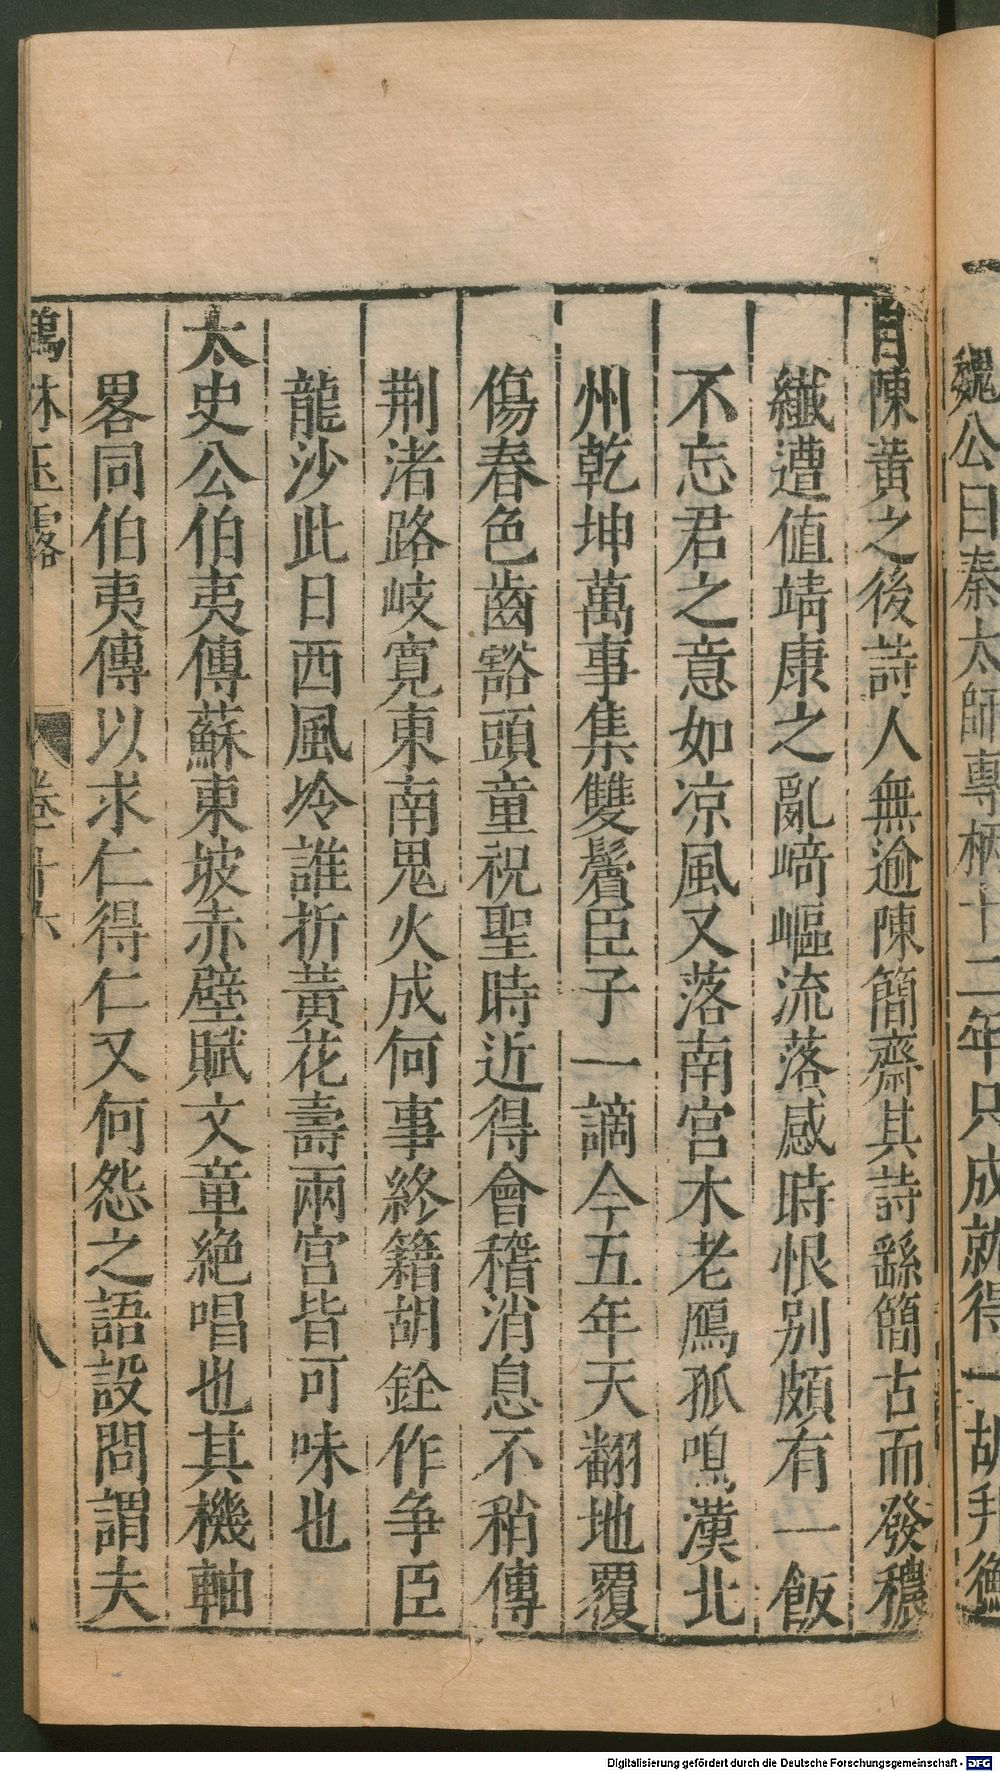 魏公曰秦太師專柄十二年只成就得一胡邦衡
自陳黄之後詩人無逾陳簡齋其詩繇簡古而發穠
纖遭值靖康之亂﨑嶇流落感時恨别頗有一飯
不忘君之意如凉風又落南宫木老鴈孤鳴漢北
州乾坤萬事集雙鬢臣子一謫今五年天翻地覆
傷春色齒豁頭童祝聖時近得會稽消息不稍傳
荆渚路岐寛東南鬼火成何事終籍胡銓作争臣
龍沙此日西風冷誰折黄花壽兩宫皆可味也
太史公伯夷傳蘇東坡赤壁賦文章絶唱也其機軸
畧同伯夷傳以求仁得仁又何怨之語設問謂夫
鶴林玉露 卷十六 八
Digitalisierung gefördert durch die Deutsche Forschungsgemeinschaft - DFG